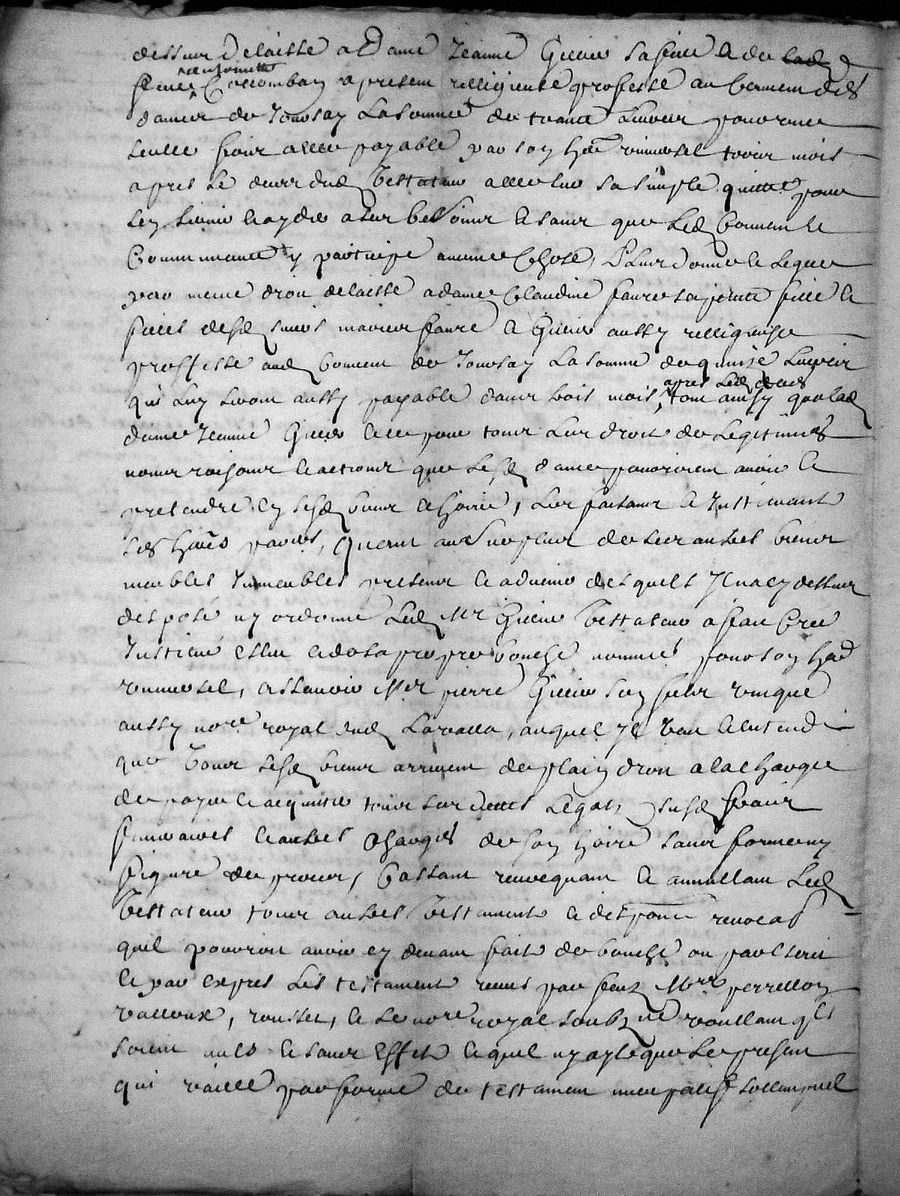 dessus delaisse a dame Jeanne Giciu sa fille & de lad
feue anthoinette Coulomban a present relligieuse professe au couvent des
dames de Joursay la somme de trante livres pour une
seulle fois a elle payable par son her universel trois mois
apres le deces dud testateur a elle sur sa simple quitte pour
sen servir & ayder a ses besoins & sans que led couvent &
communauté y participe aucune chose, Plus donne & legue
par meme droit delaisse a dame Claudine faure sa petite fille &
filles desd maries faure & Giciu aussy relligieuse
professe aud couvent de Joursay la somme de quinze livres
qui luy seront aussy payable dans trois mois apres led deces tout ainsy qua lad
dame Jeanne Giciu & ce pour tous leur droit de legitimes
noms raisons & actions que lesd dames pourroient avoir &
pretendre en sesd biens & hoirie, les faisant & Instituant
ses heres particuliers, Quant au surplus de ses autres biens
meubles Immeubles presents & advenir desquels Il na cy dessus
disposé ny ordonné led Mr Giciu testateur a fait Cree
Institué & de sa propre bouche nommé pour son her
universel, assavoir Mer pierre Giciu son filz unique
aussy nore royal dud Lavalla, auquel Il veut & entend
que tous sesd biens arrivent de plain droit a la charge
de payer & acquitter tous ses dettes legats susd fraix
funeraires & autres charges de son hoirie sans forme ny
figure de proces, Cassant revocquant & annullant led
testateur tous autres testaments & disposition
quil pourroit avoir cy devant fait de bouche ou par escrit
& par expres les testament receus par feux Mers perrellon
valloux, rousset, & le nore royal soubzné voullant qls
soient nuls & sans effet & quil ny aye que le present
qui vaille par forme de testament nuncupatif sollempnel